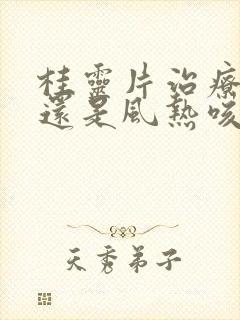 桂靈片治療
還是風熱咳
天秀弟子